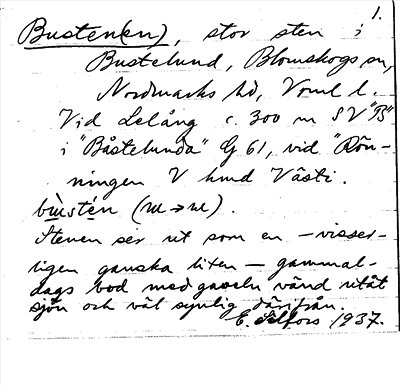 1.
Busten(en), stor sten i
Bustelund, Blomskogs sn,
Nordmarks hd, Vrml l.
Vid Lelång c. 300 m SV "B"
i "Båstelunda" G 61, vid "Rön-
ningen V hmd Västi.
bùstén (u→u).
Stenen ser ut som en – visser-
ligen ganska liten – gammal-
dags bod med gaveln vänd utåt
sjön och väl synlig därifrån.
E. Elfors 1937.